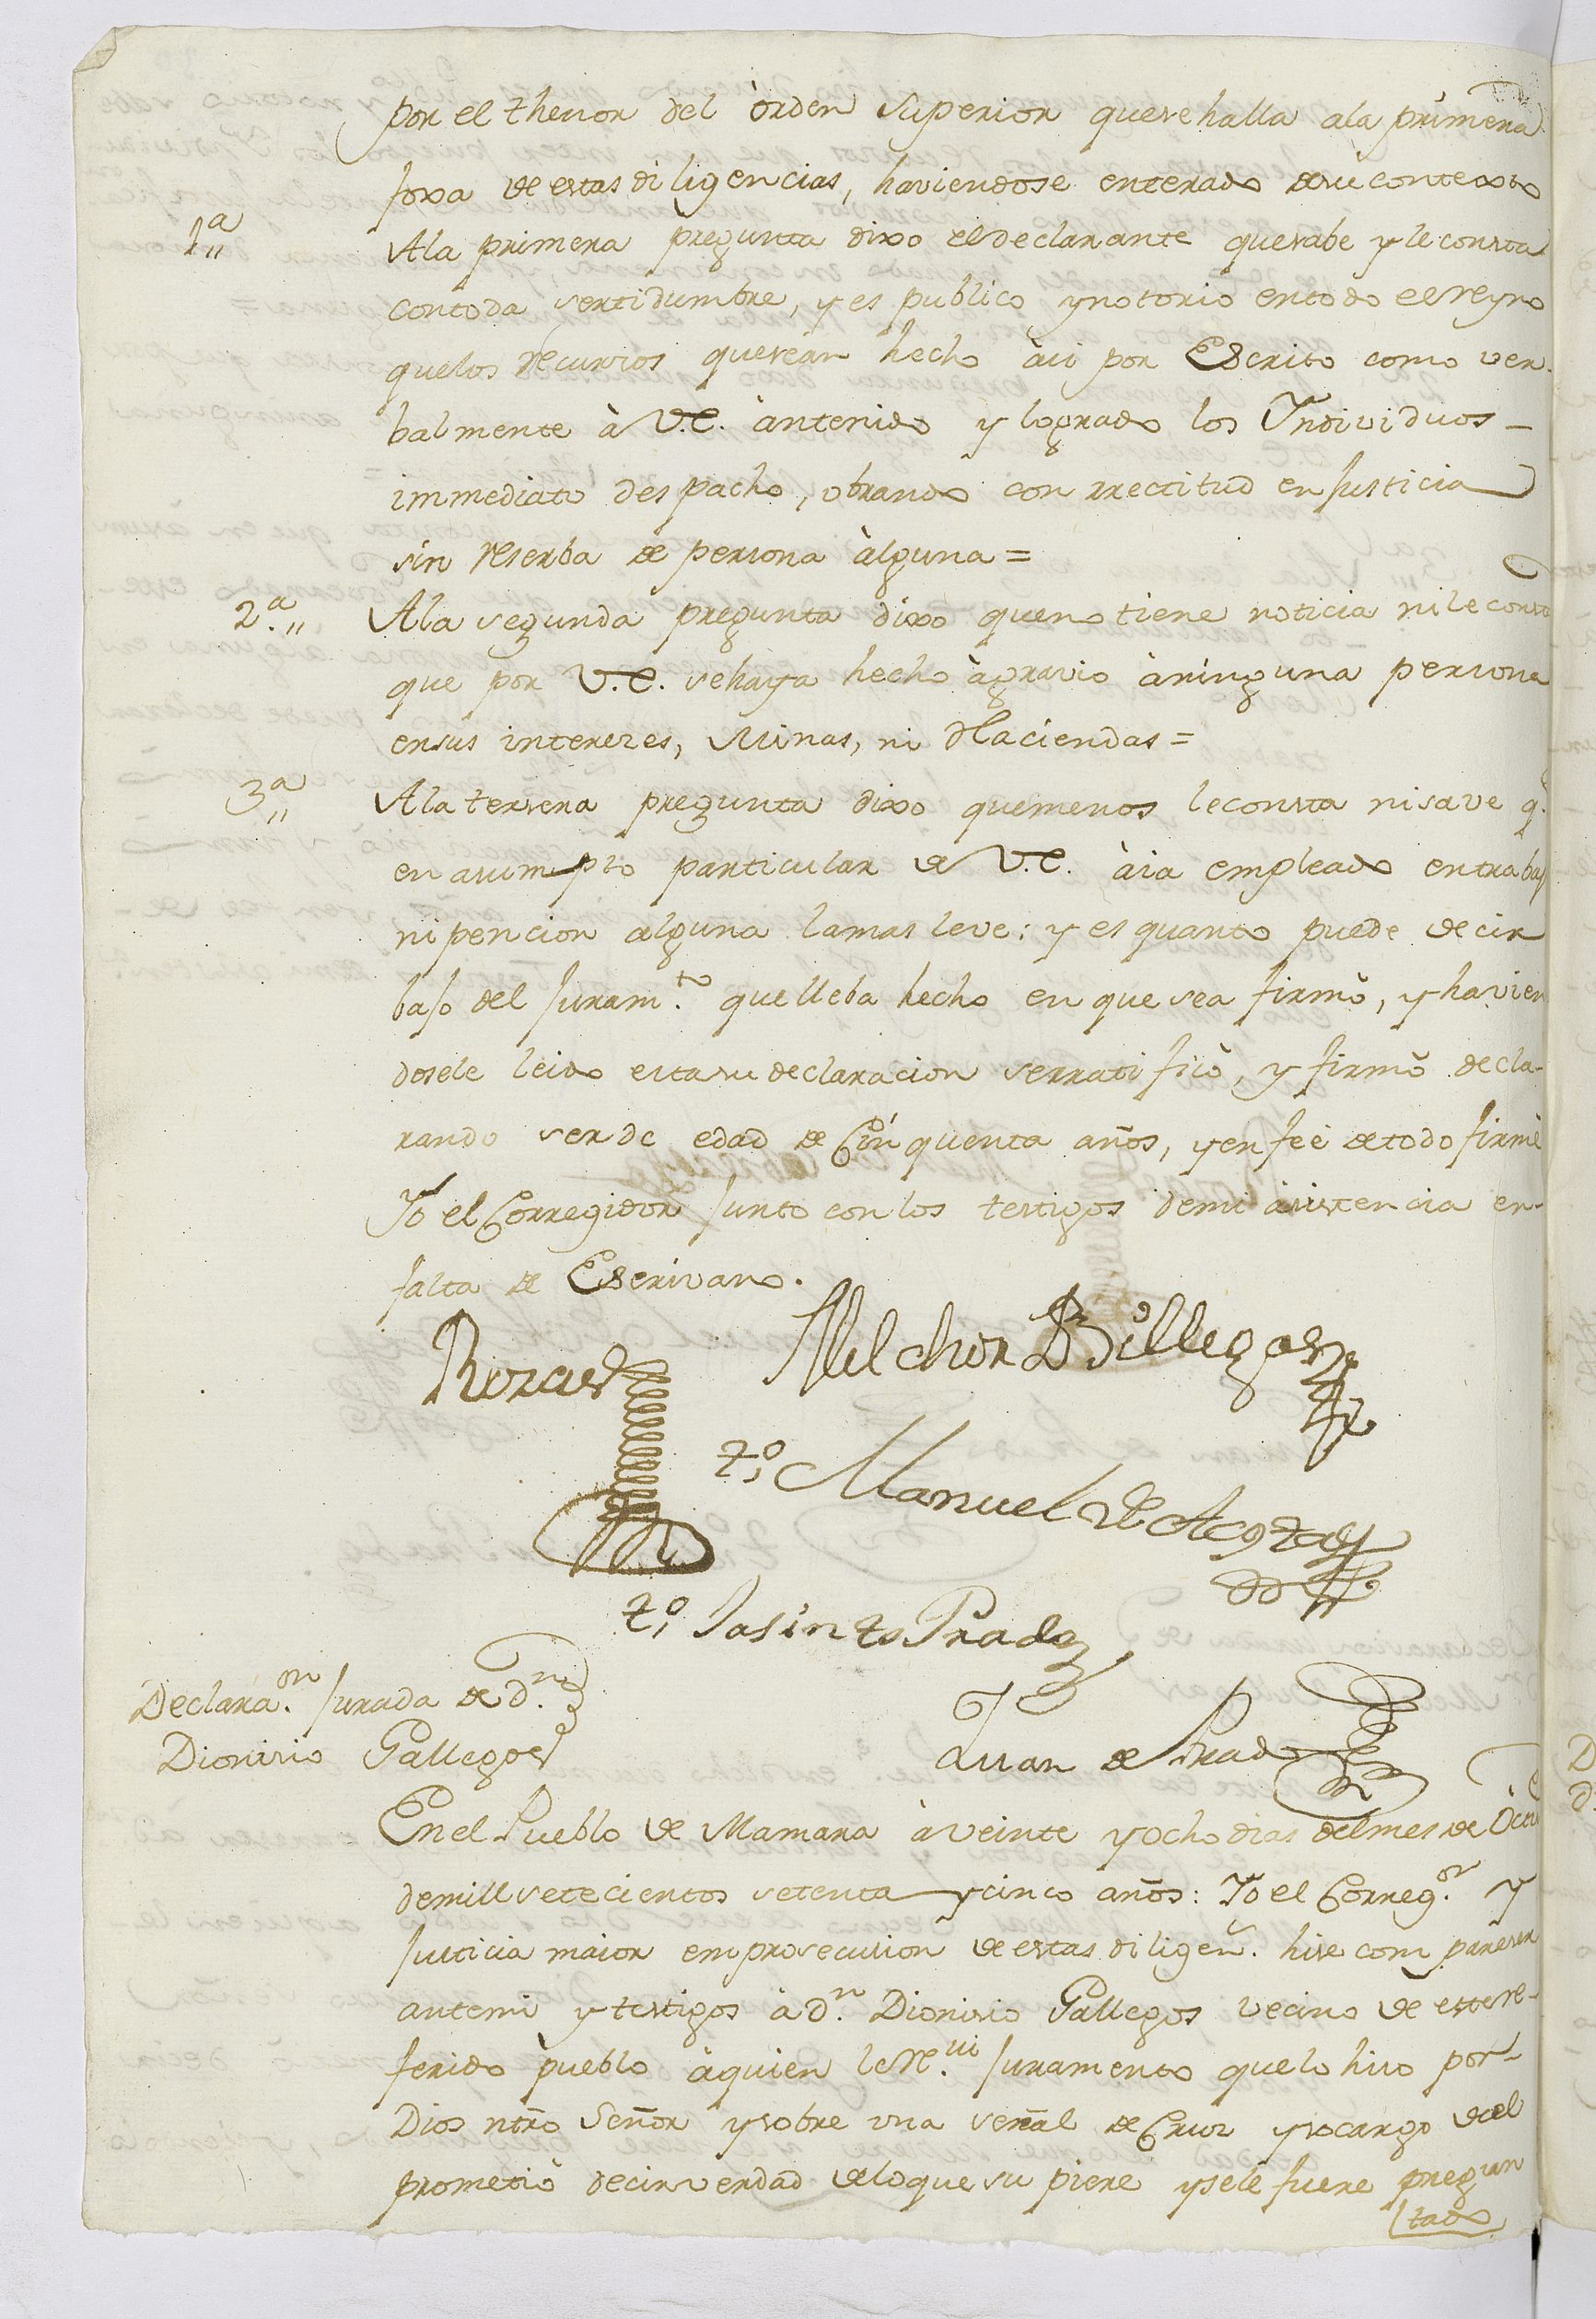 por el thenor del òrden superior que se halla ala primera
foxa de estas diligencias, haviendose enterado de su contexto
1ª,, Ala primera pregunta dixo el declarante que sabe y le consta
con toda sertidumbre, y es publico y notorio en todo el reyno
que los recursos que sean hecho àsi por Escrito como ver-
balmente à V.E. àn tenido y logrado los Yndividuos -
immediato despacho, obrando con rrectitud en Justicia
sin reserba de persona àlguna =
2.ª,, Ala segunda pregunta dixo que no tiene noticia ni le consta
que por V.E. se haya hecho àgravio àninguna persona
en sus intereses, Minas, ni Haciendas =
3ª,, Ala tersera pregunta dixo que menos le consta ni save q.ᵉ
en asumpto particular de V.E. àia empleado en trabajo
ni pencion alguna la mas leve: y es quanto puede decir
bajo del Juram.ᵗᵒ que lleba hecho en que sea firmò, y havien
dosele leido esta su declaracion serratificò, y firmò decla-
rando ser de edad de Cinquenta años, y en feè de todo firmè
Yo el Corregidor Junto con los testigos de mi àsistencia en-
falta de Escrivano.
Rozas Melchor Billegas
t.º Manuel de Acosta
t.º Jasinto Prado
Declara.ᵒⁿ Jurada de d.ⁿ
Dionisio Gallegos Juan de Prado
En el Pueblo de Mamara à veinte y ocho dias del mes de Octu
de mill setecientos setenta y cinco años: Yo el Correg.ᵒʳ y
Justicia maior em prosecusion de estas diligen̄. hise compareser
ante mi y testigos à d.ⁿ Dionisio Gallegos vecino de este re-
ferido pueblo àquien le Re.ᵛⁱ Juramento que lo hiso por -
Dios ntr̄o Señor y sobre una señal de Cruz y so cargo de el
prometiò decir verdad de lo que supiere y se le fuere pregun
tado